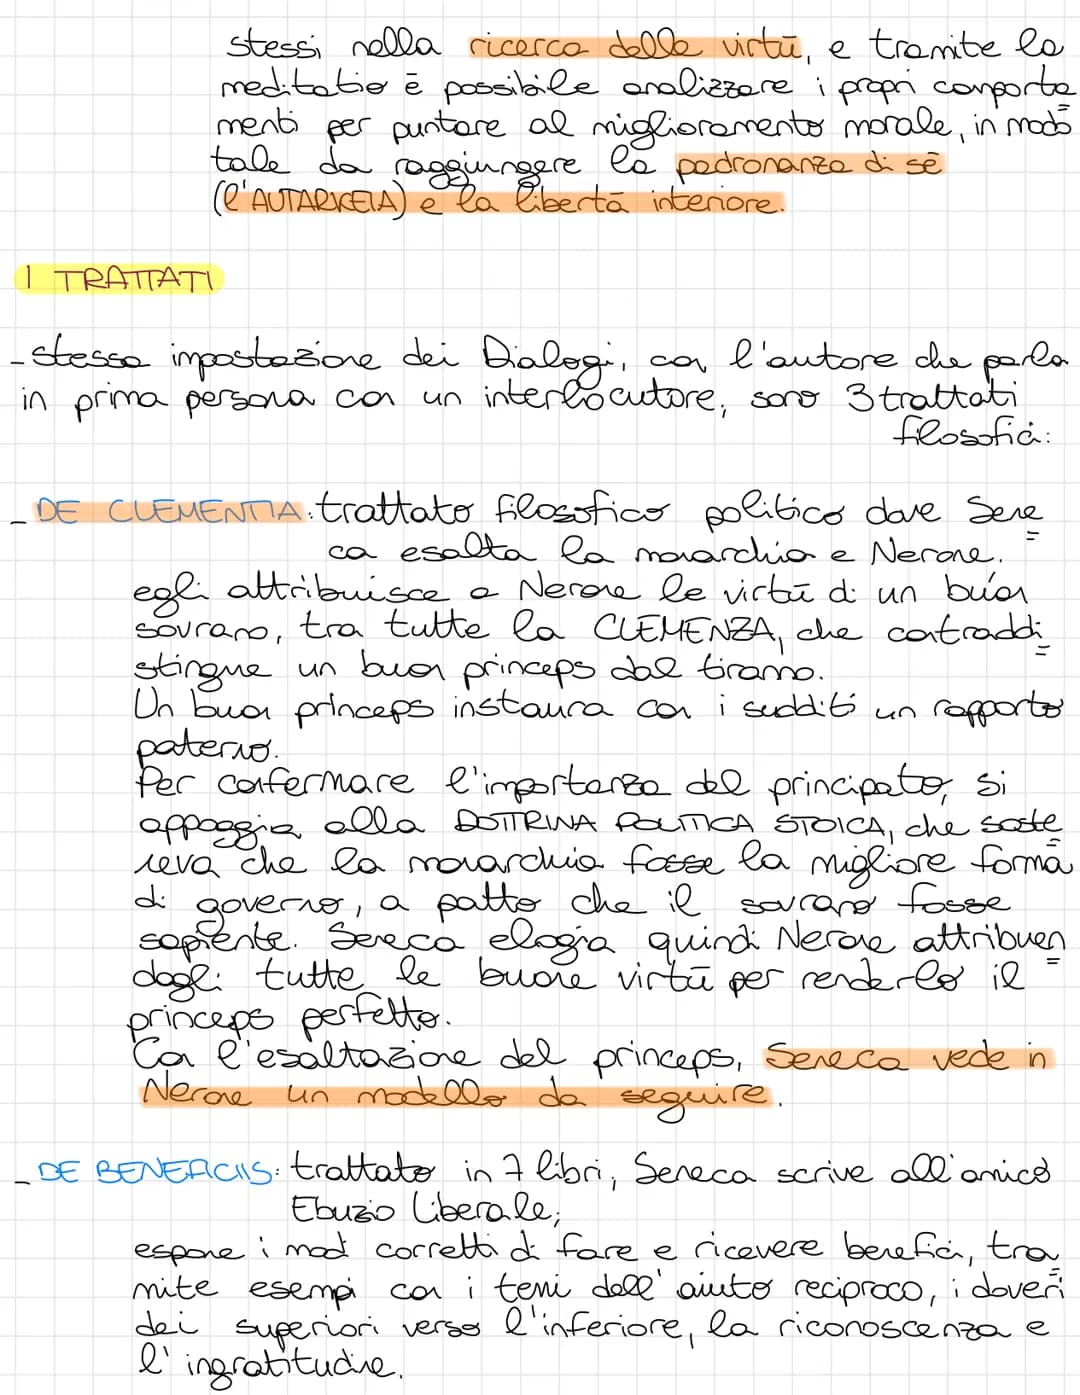 stessi nella ricerca delle virtù, e tramite la
meditatio è possibile analizzare i propri comporta=
menti per puntare al miglioramento morale, in modo
tale da raggiungere la padronanza di sé
(l'AUTARKEIA) e la libertà interiore.
I TRATTATI
- stessa impostazione dei Dialogi, con l'autore che parla
in prima persona con un interlocutore, sono 3 trattati
filosofici:
- DE CLEMENTIA: trattato filosofico politico dove Sene=
ca esalta la monarchia e Nerone.
egli attribuisce a Nerone le virtù di un buon
sovrano, tra tutte la CLEMENZA, che contraddi=
stingue un buon princeps dal tiranno.
Un buon princeps instaura con i sudditi un rapporto
paterno.
Per confermare l'importanza del principato, si
appoggia alla DOTTRINA POLITICA STOICA, che soste=
neva che la monarchia fosse la migliore forma
di governo, a patto che il sovrano fosse
sapiente. Seneca elogia quindi Nerone attribuen=
dogli tutte le buone virtù per renderlo il
princeps perfetto.
Con l'esaltazione del princeps, Seneca vede in
Nerone un modello da seguire.
- DE BENEFICIIS: trattato in 7 libri, Seneca scrive all'amico
Ebuzio Liberale;
espone i modi corretti di fare e ricevere benefici, tra=
mite esempi con i temi dell'aiuto reciproco, i doveri
dei superiori verso l'inferiore, la riconoscenza e
l'ingratitudine.